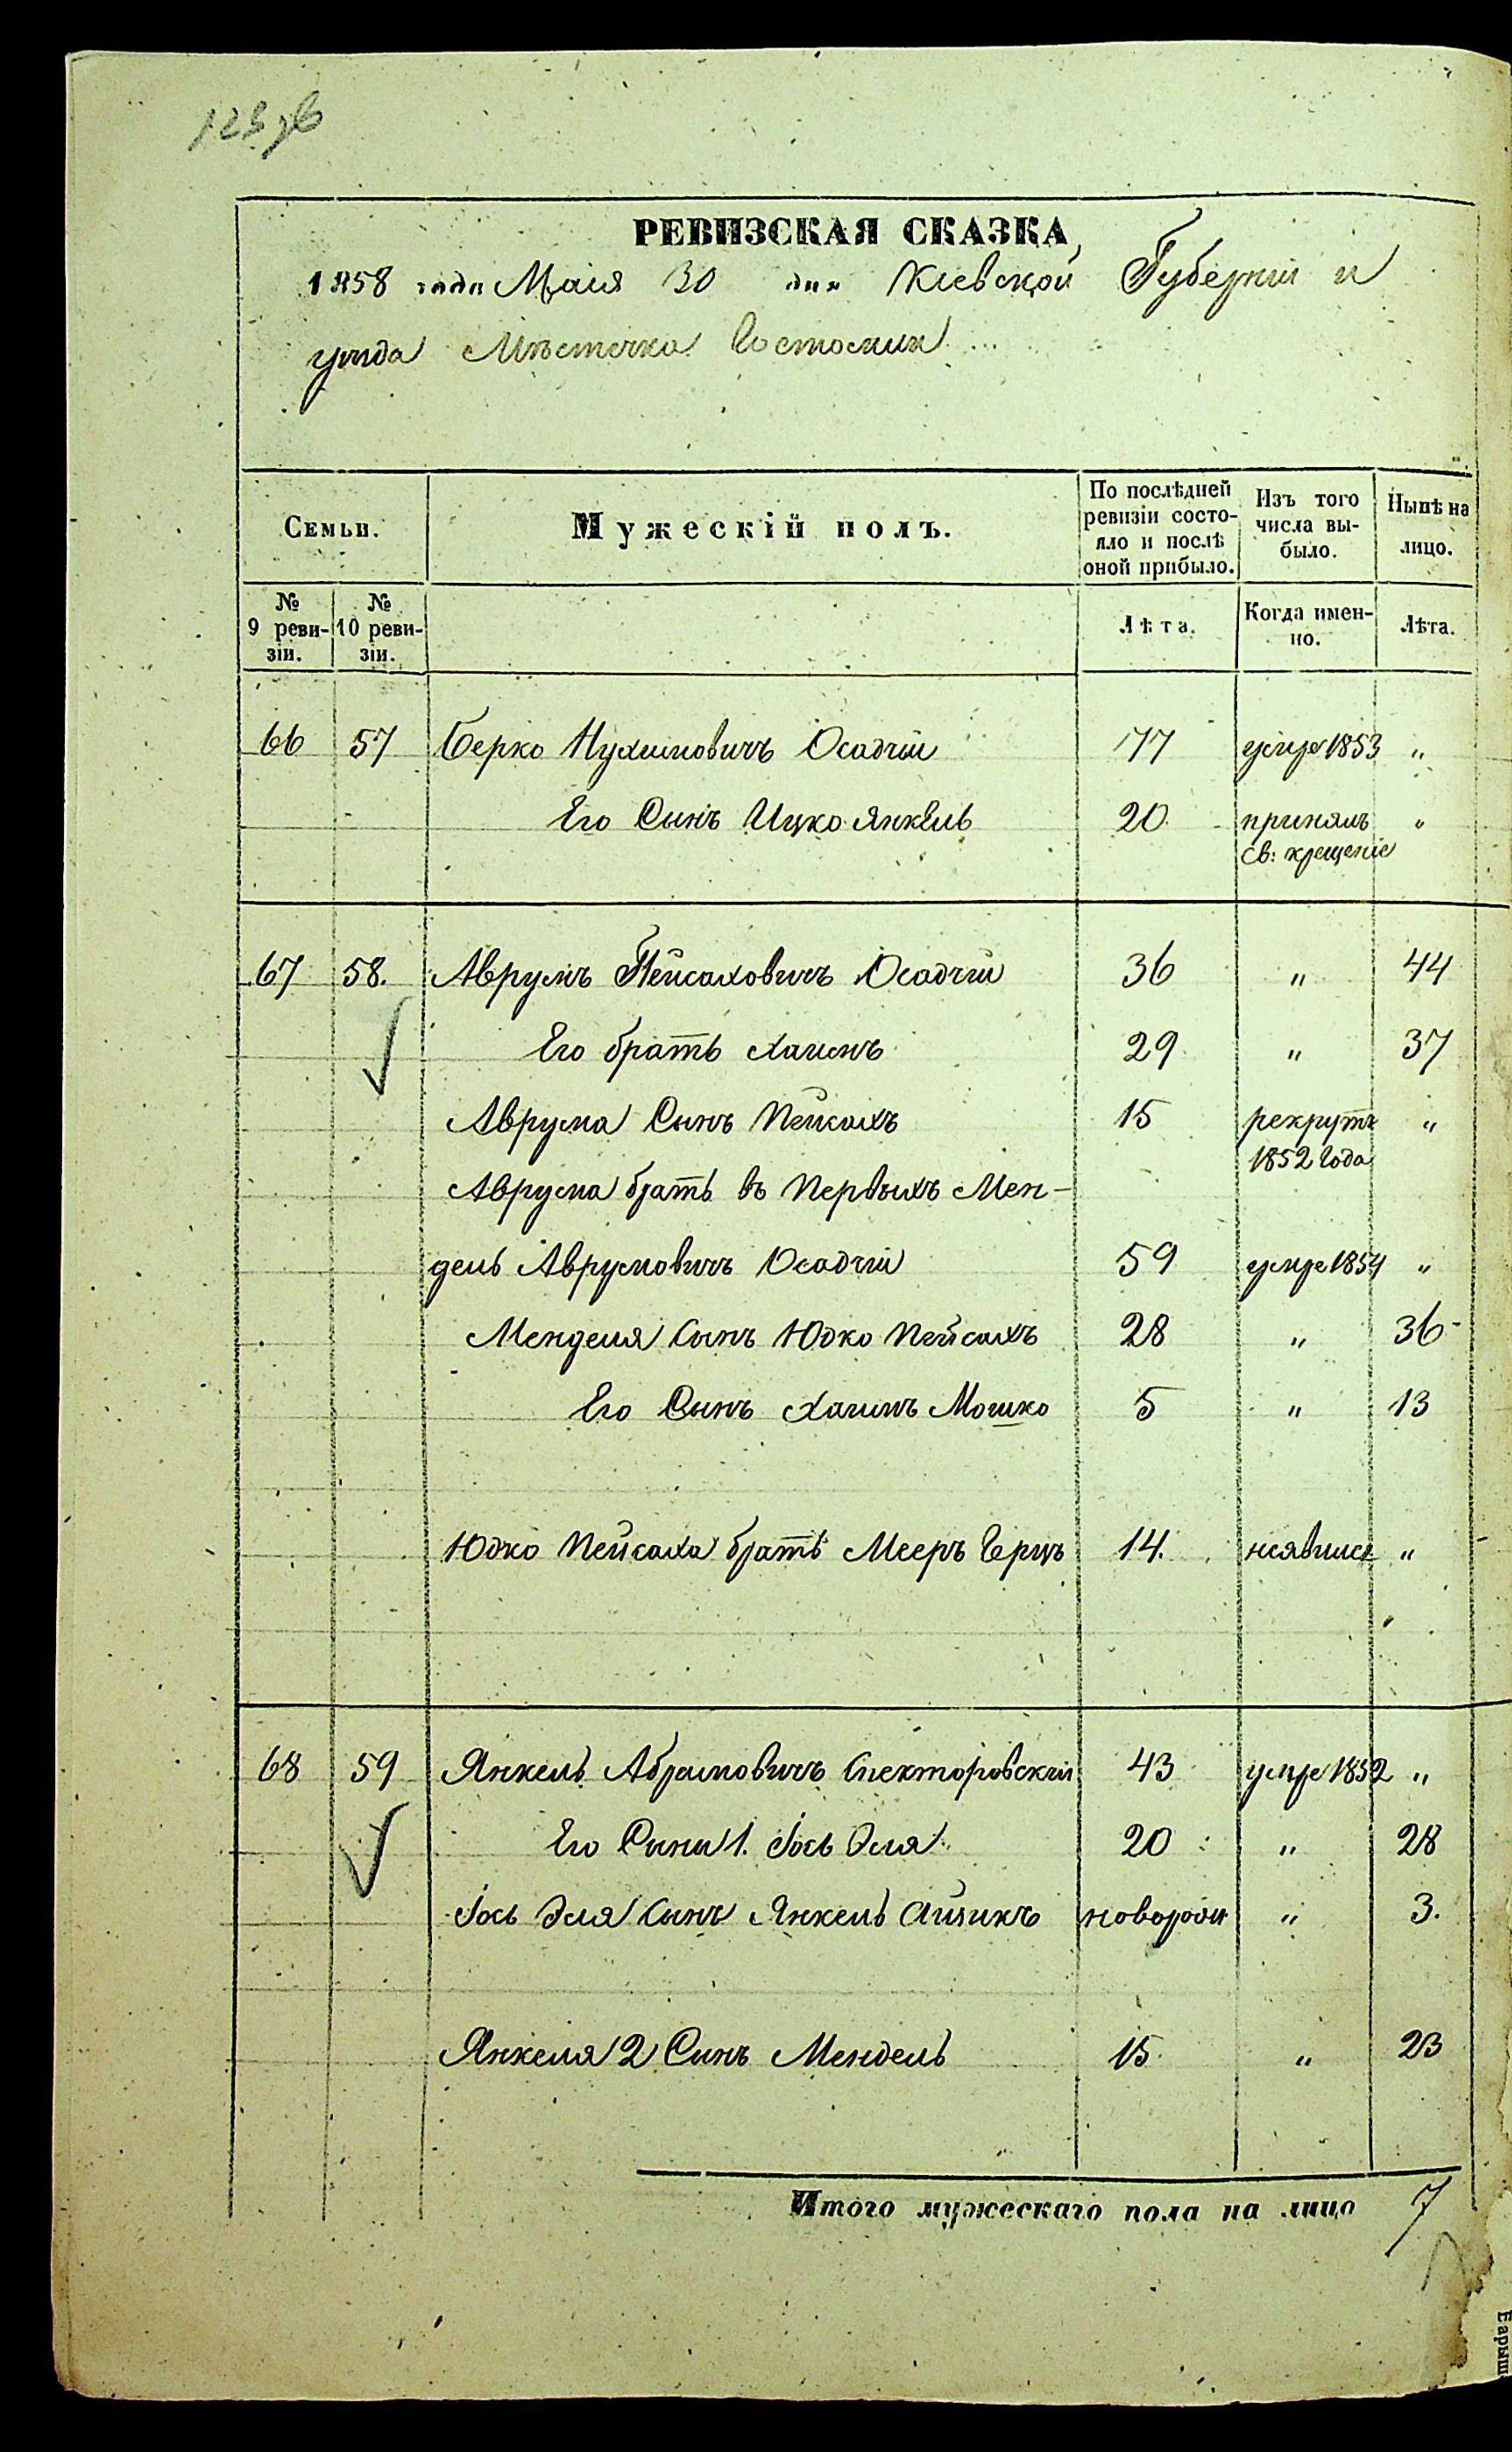 123 об
РЕВИЗСКАЯ СКАЗКА
1858 года Маія 30 дня Кіевской Губерніи и
уѣзда Мѣстечка Гостомля
Семьи. Мужескій полъ. По послѣдней ревизіи состояло и послѣ оной прибыло. Изъ того числа выбыло. Нынѣ на лицо.
№ 9 ревизіи. № 10 ревизіи. Лѣта. Когда именно. Лѣта.
66 57 Берко Нухимовичъ Осадчій 77 умре 1853 "
Его Сынъ Ицко Янкель 20 принялъ "
св: крещеніе
67 58. Аврумъ Пейсаховичъ Осадчій 36 " 44
Его братъ Хаимъ 29 " 37
Аврума Сынъ Пейсахъ 15 рекрутъ "
1852 года
Аврума братъ въ Первыхъ Мен-
дель Аврумовичъ Осадчій 59 умре 1854 "
Менделя Сынъ Юдко Пейсахъ 28 " 36
Его Сынъ Хаимъ Мошко 5 " 13
Юдко Пейсаха братъ Мееръ Герцъ 14. "
68 59 Янкель Абрамовичъ Спекторовскій 43 умре 1852 "
Его Сыны 1. Іось Эля 20 " 28
Іось Эля Сынъ Янкель Айзикъ новорожд " 3.
Янкеля 2 Сынъ Мендель 15 " 23
Итого мужескаго пола на лицо 7
Барыш